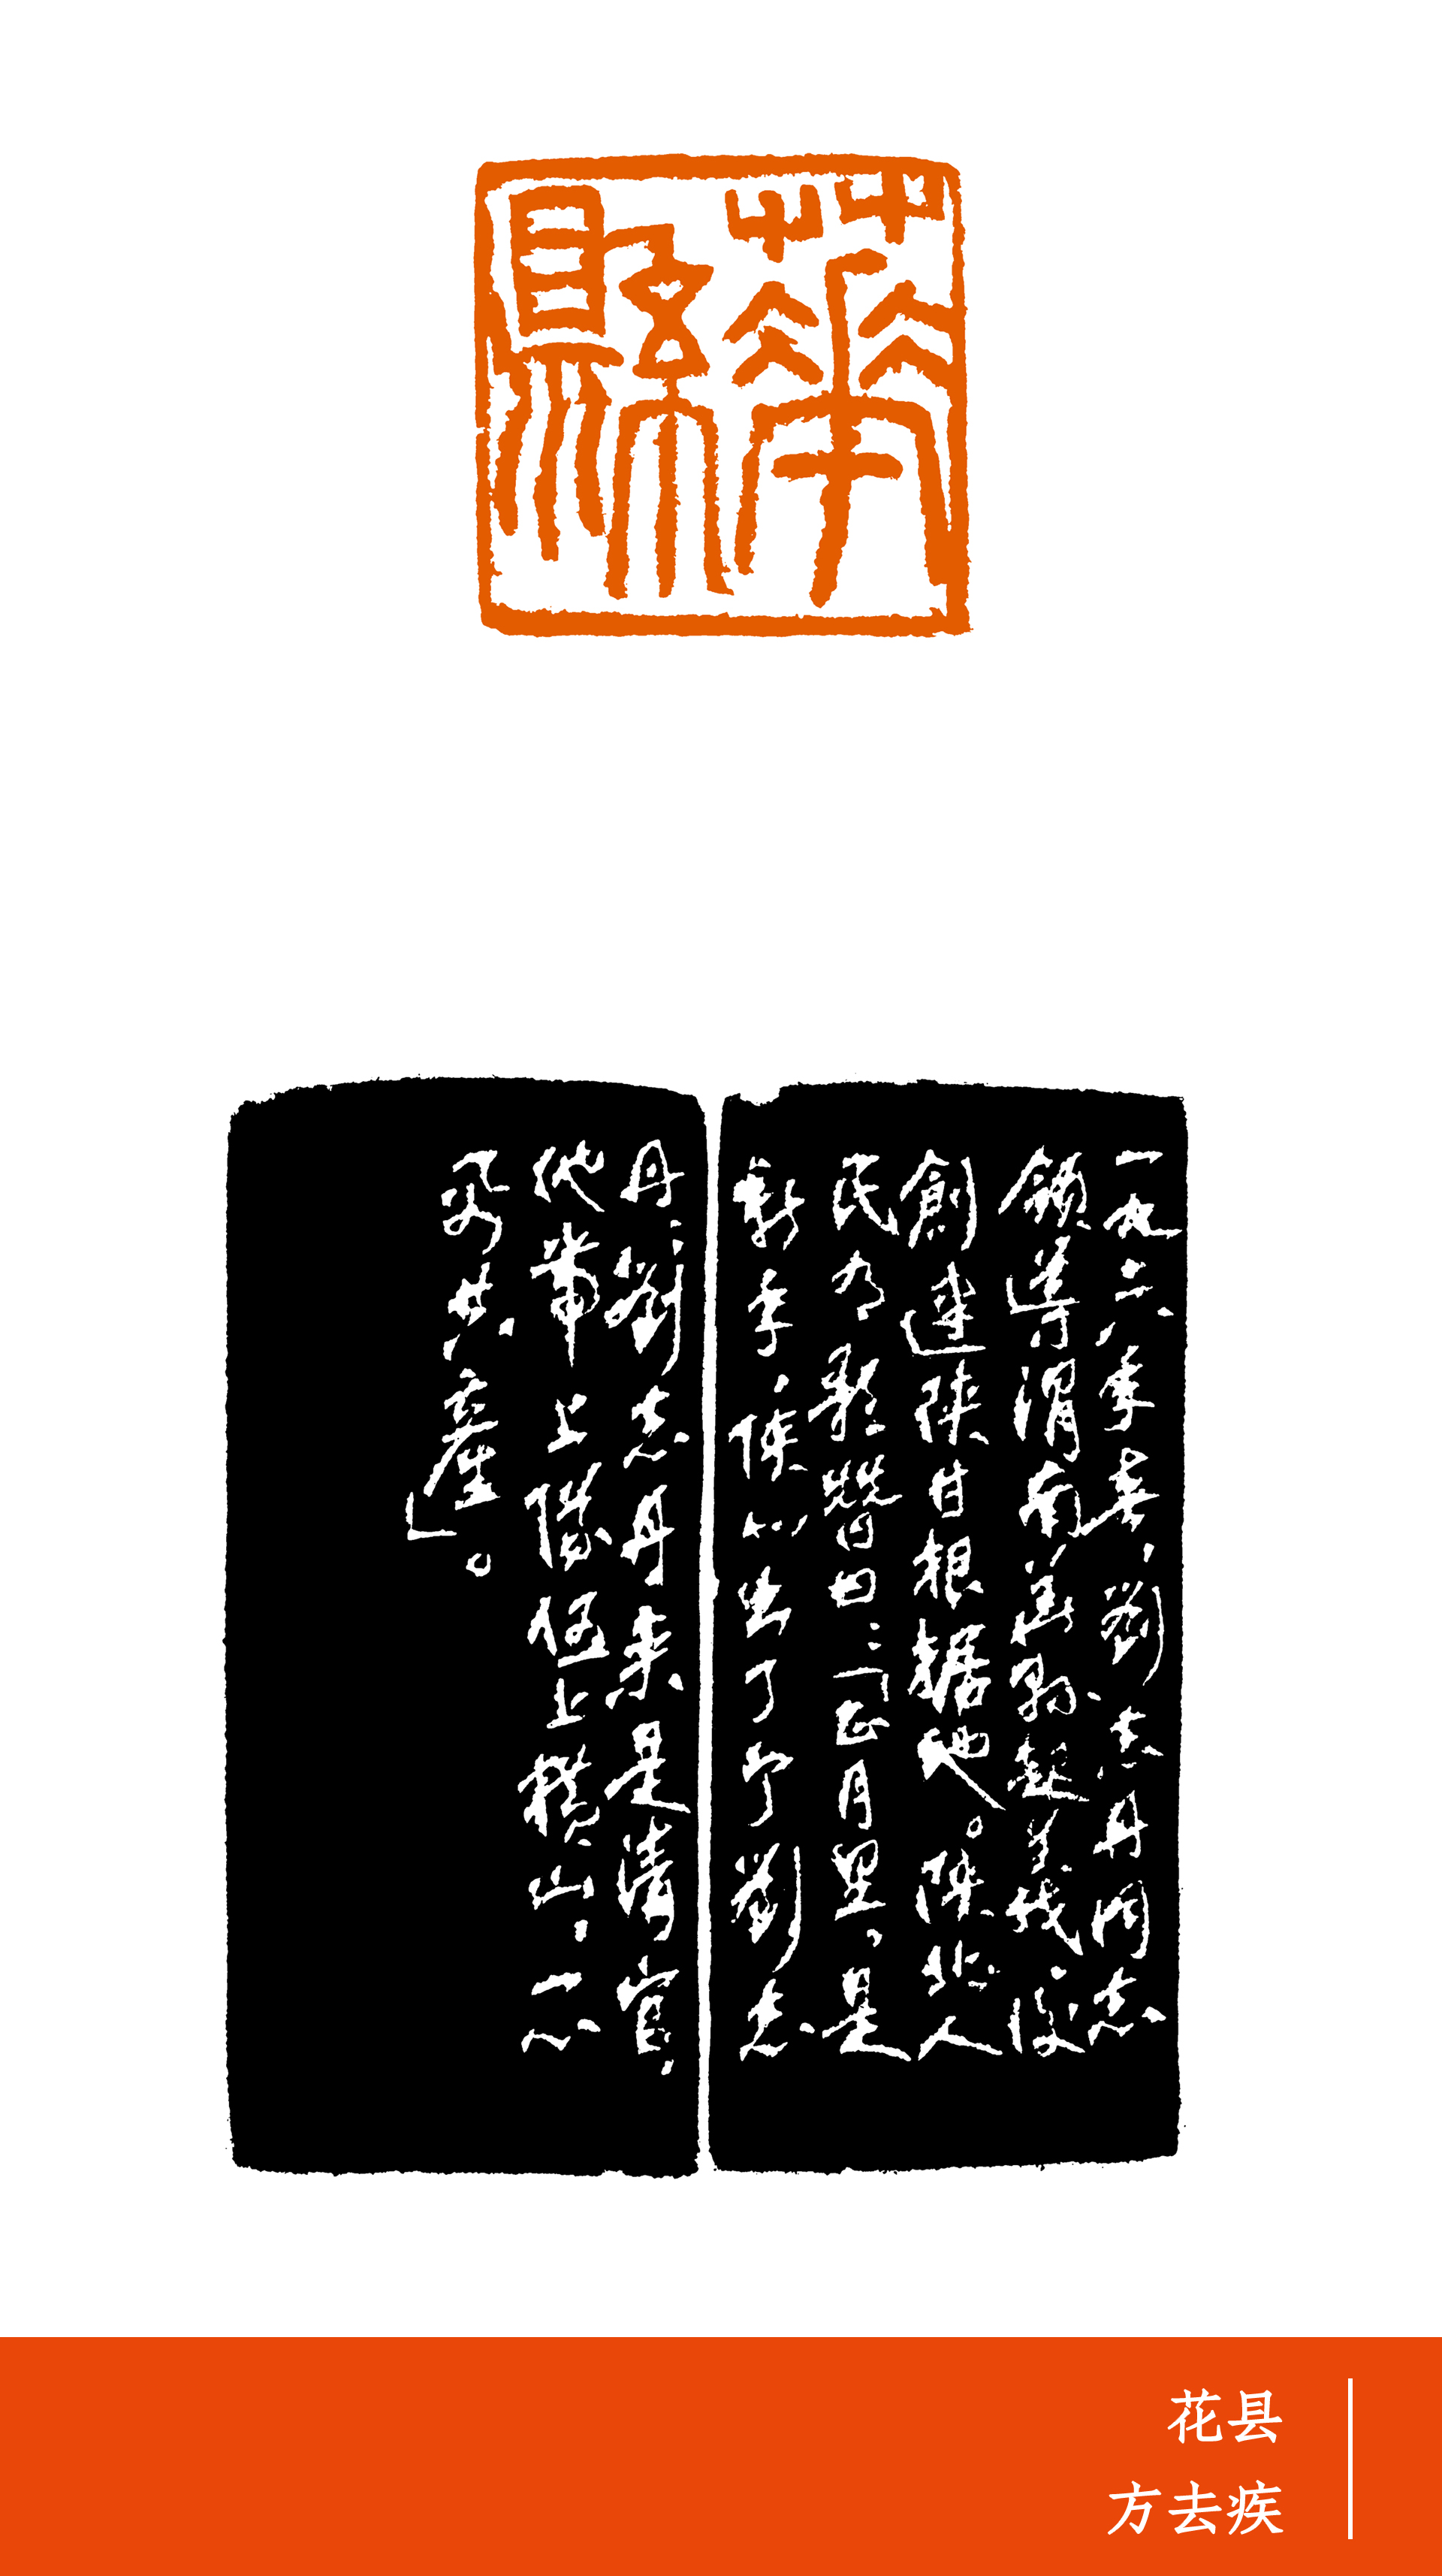 華縣
一九二六年春，劉志丹同志
領導渭南華縣起義。後
創建陝甘根據地。陝北人
民有歌贊曰：「正月里，是
新年，陝北出了个劉志
丹；劉志丹来是清官，
他帶上隊伍上横山，一心
要共產」。
花县
方去疾